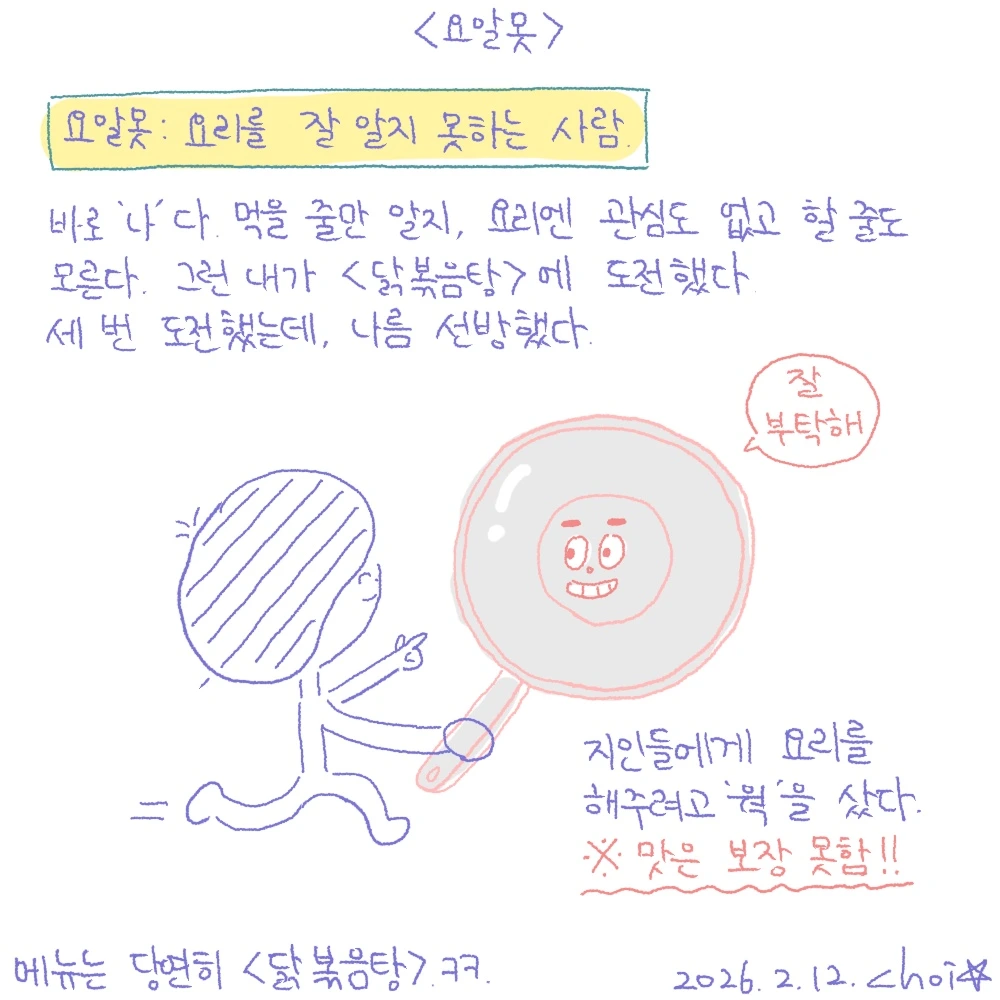 <요알못>
요알못: 요리를 잘 알지 못하는 사람.
바로 '나'다. 먹을 줄만 알지, 요리엔 관심도 없고 할 줄도
모른다. 그런 내가 <닭볶음탕>에 도전했다.
세 번 도전했는데, 나름 선방했다.
잘
부탁해
지인들에게 요리를
해주려고 '웍'을 샀다.
※ 맛은 보장 못함!!
메뉴는 당연히 <닭볶음탕>.ㅋㅋ.
2026.2.12. choi☆